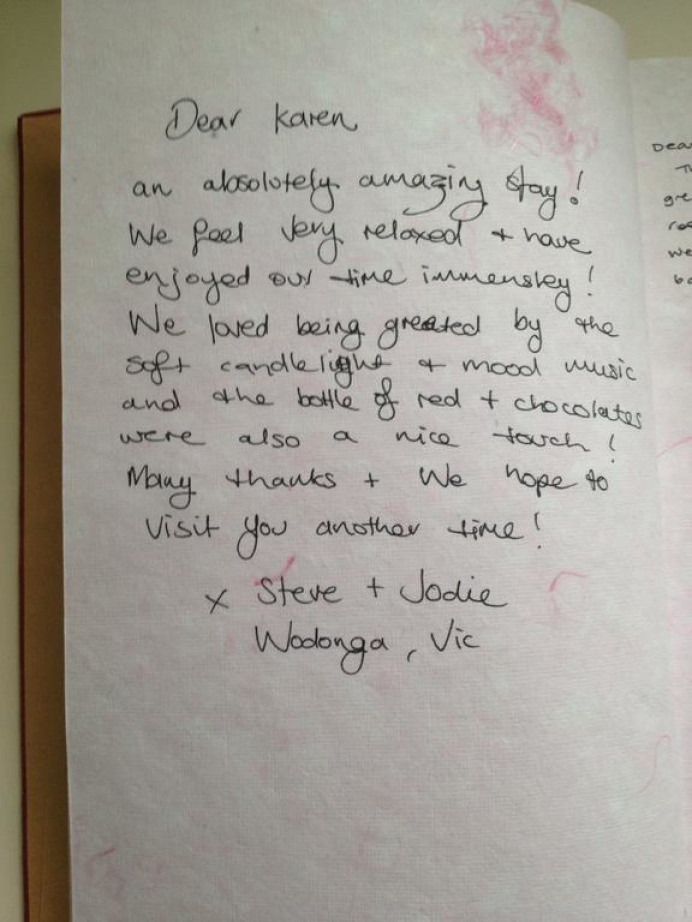 Dear Karen
an absolutely amazing stay!
We feel very relaxed + have
enjoyed our time immensley!
We loved being greated by the
soft candlelight + mood music
and the bottle of red + chocolates
were also a nice touch!
Many thanks + We hope to
visit you another time!
x Steve + Jodie
Wodonga, Vic
Dea
gre
we